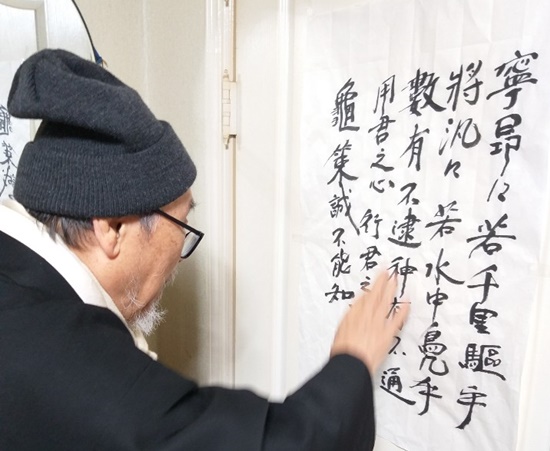 寧昂々若千里驅乎
將氾々若水中鳧乎
數有不逮神有不通
用君之心行君之
龜策誠不能知